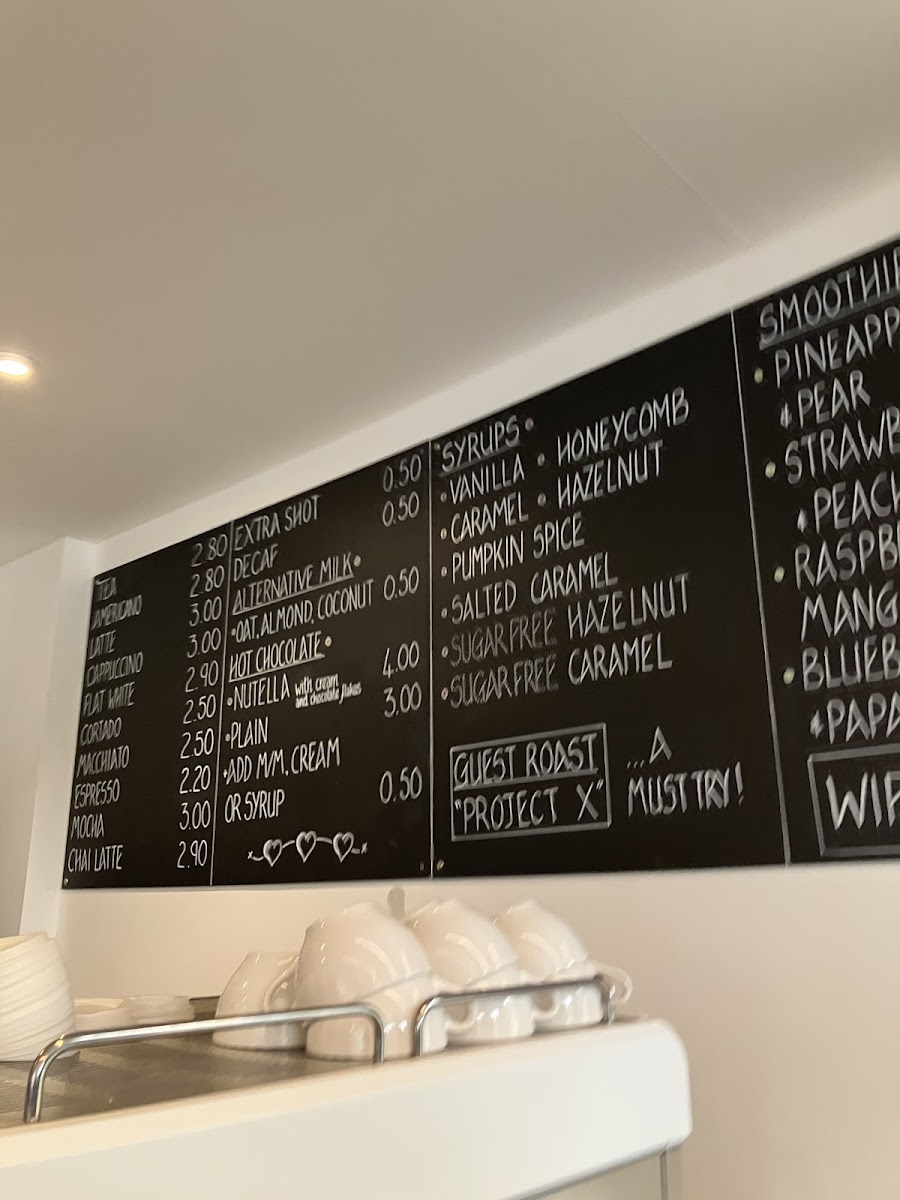 TEA 2.80
AMERICANO 2.80
LATTE 3.00
CAPPUCCINO 3.00
FLAT WHITE 2.90
CORTADO 2.50
MACCHIATO 2.50
ESPRESSO 2.20
MOCHA 3.00
CHAI LATTE 2.90
EXTRA SHOT 0.50
DECAF 0.50
ALTERNATIVE MILK•
•OAT, ALMOND, COCONUT 0.50
HOT CHOCOLATE•
•NUTELLA with cream and chocolate flakes 4.00
•PLAIN 3.00
•ADD M/M, CREAM
OR SYRUP 0.50
•SYRUPS•
•VANILLA • HONEYCOMB
•CARAMEL • HAZELNUT
•PUMPKIN SPICE
•SALTED CARAMEL
•SUGARFREE HAZELNUT
•SUGARFREE CARAMEL
GUEST ROAST
"PROJECT X"
...A
MUST TRY!
SMOOTHI
•PINEAPP
& PEAR
•STRAWB
& PEACH
•RASPB
MANG
•BLUEB
& PAPA